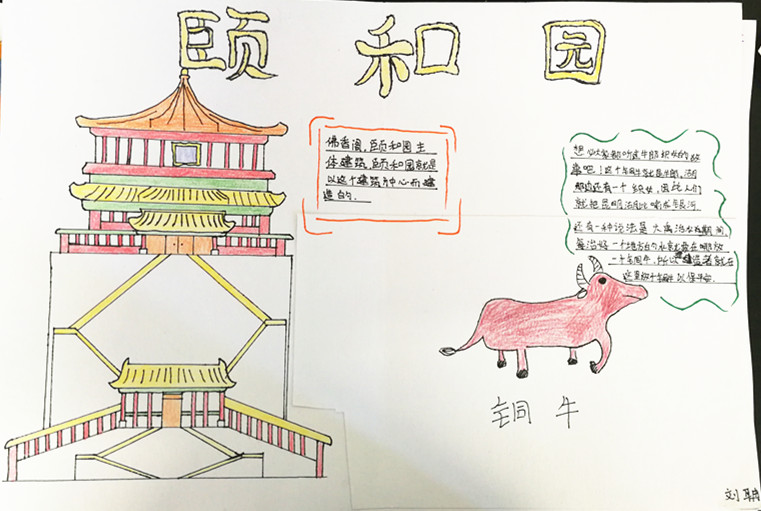 颐和园
佛香阁,颐和园主
体建筑,颐和园就是
以这个建筑为中心而建
造的.
想必大家都听过牛郎织女的故
事吧!这个铜牛就是牛郎,
还有一个织女,因此人们
就把昆明湖比喻成银河.
还有一种说法是大禹治水期间,
每治好一个地方的水患就会在哪放
一个铜牛,
这里放个铜牛以保平安.
铜牛
刘